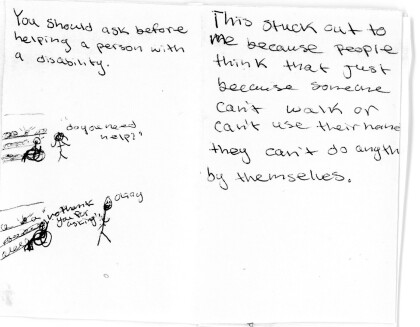 You should ask before
helping a person with
a disability.
do you need
help?"
"no thank
you for
asking"
okay
This stuck out to
me because people
think that just
because someone
can't walk or
can't use their
they can't do
by themselves.